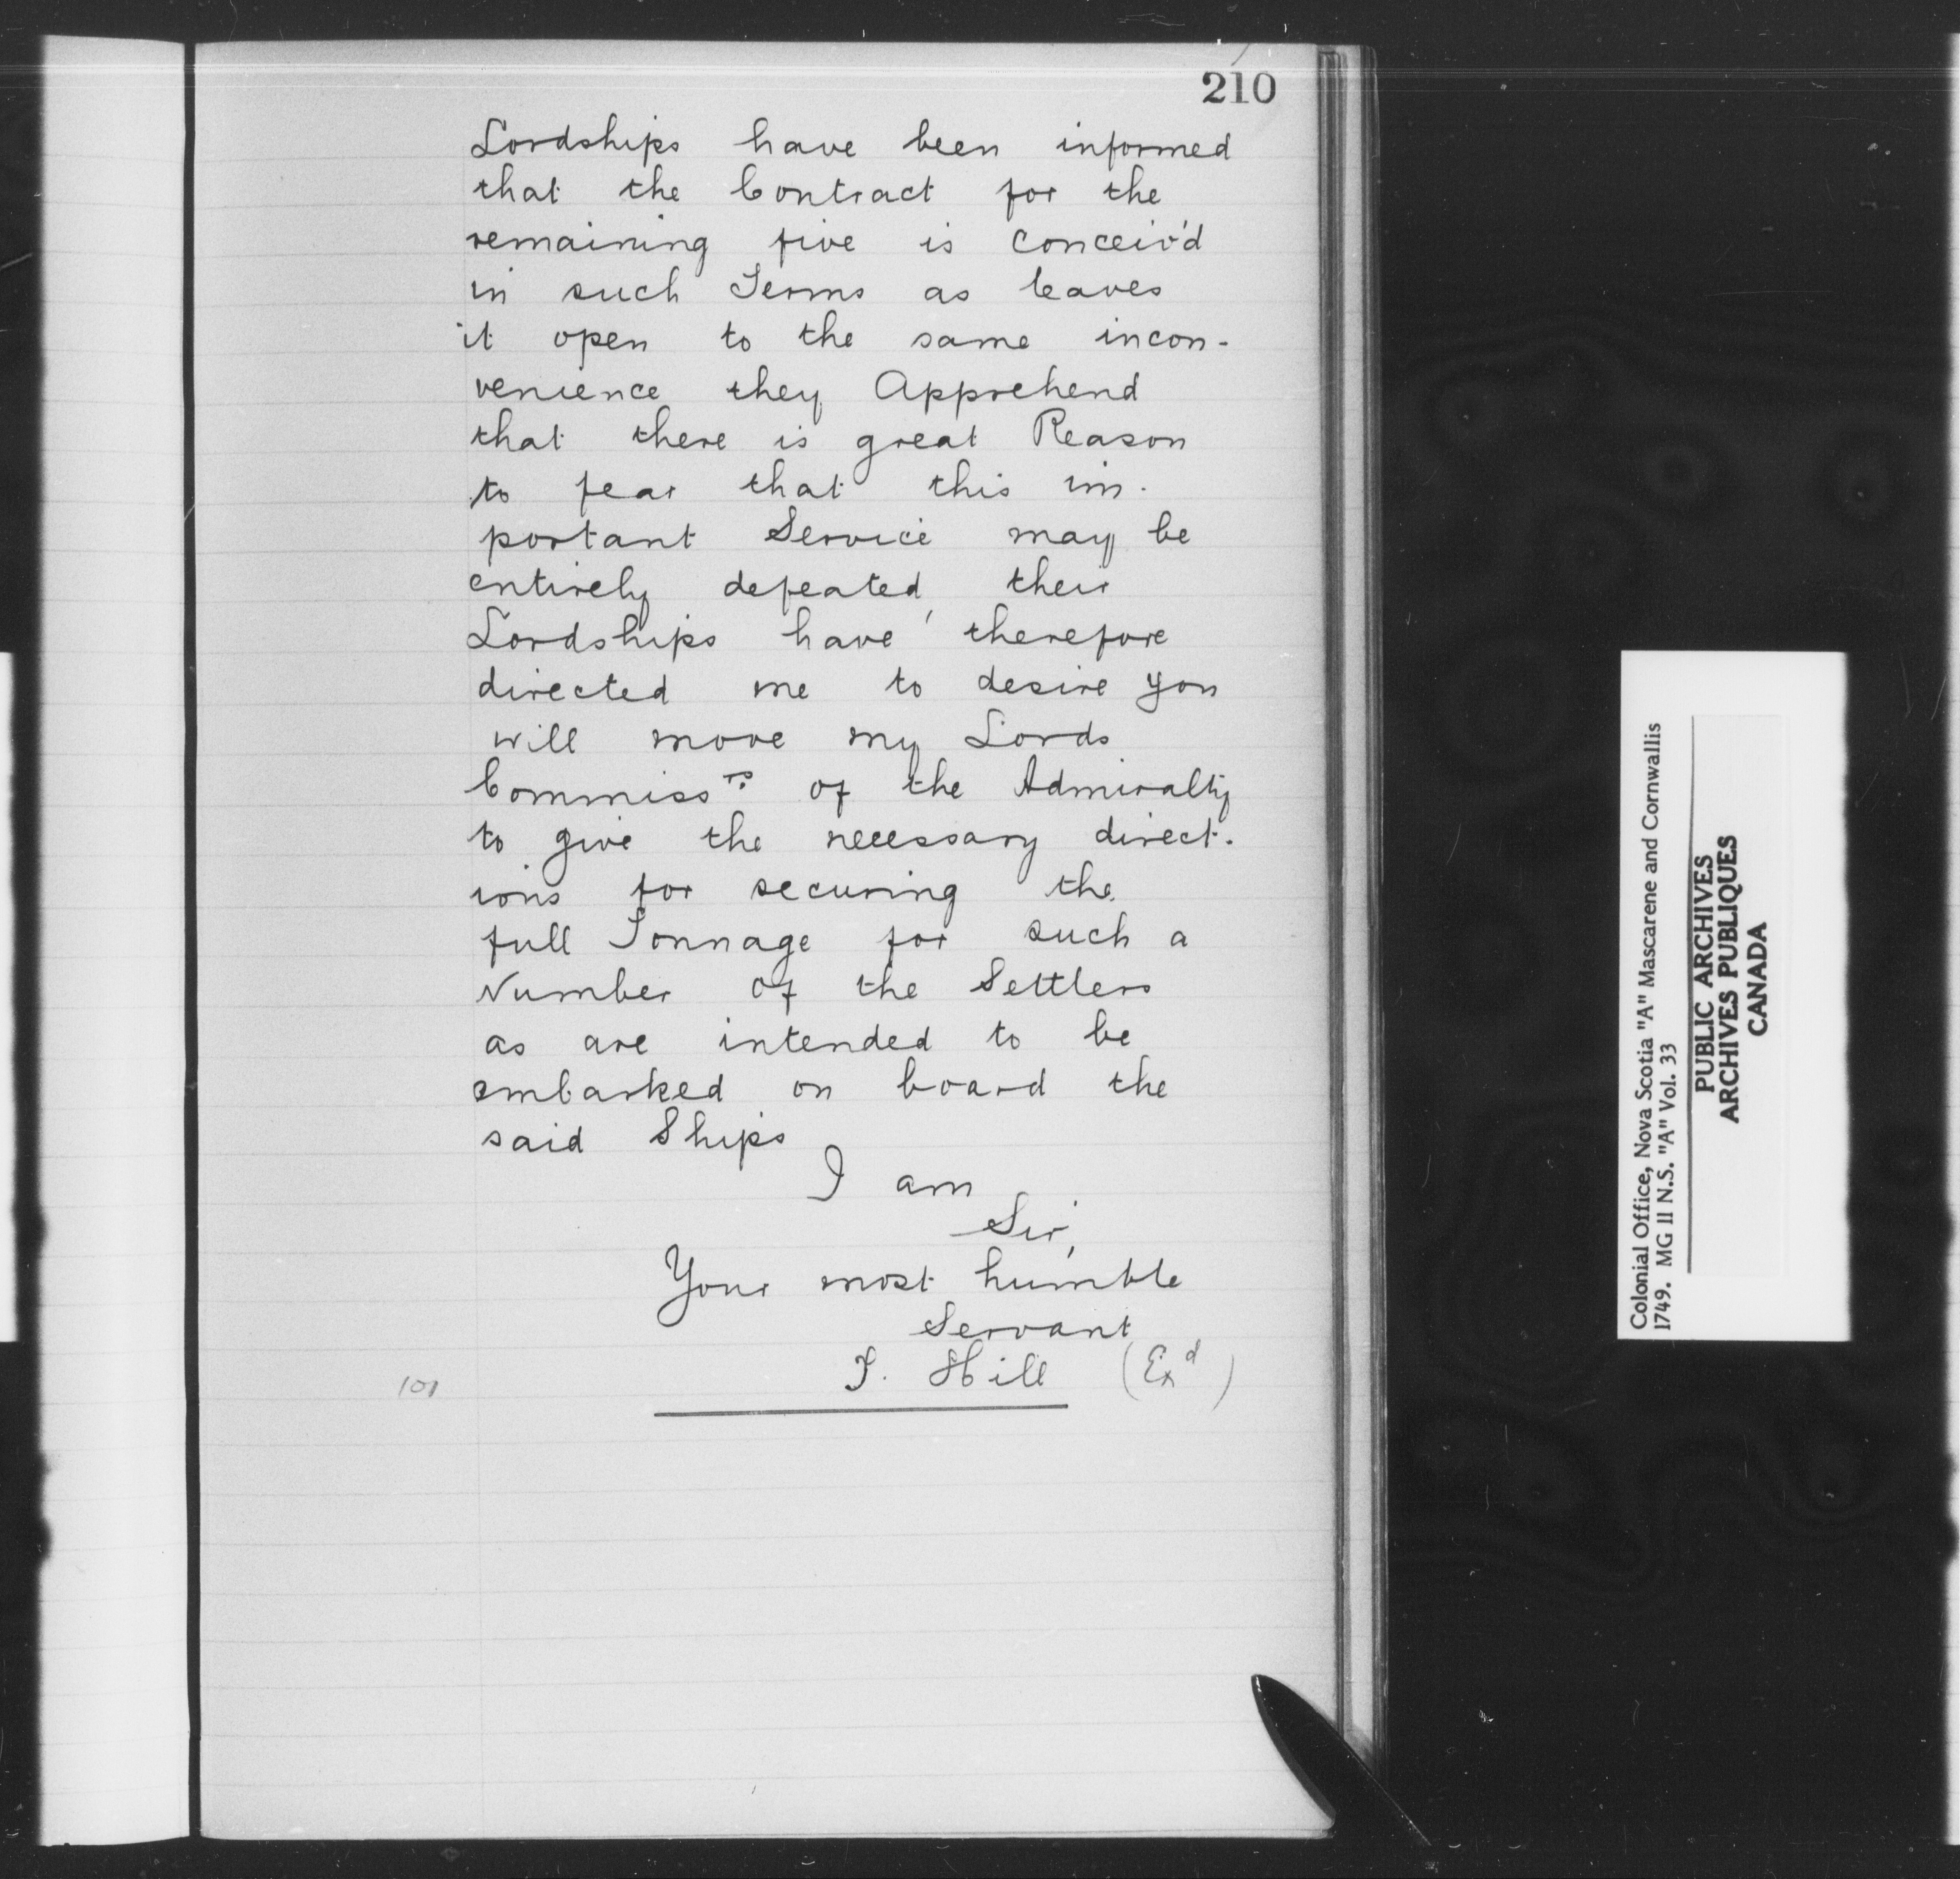 210
Lordships have been informed
that the Contract for the
remaining five is Conceiv'd
in such Terms as leaves
it open to the same incon-
venience they Apprehend
that there is great Reason
to fear that this im-
portant Service may be
entirely defeated, their
Lordships have therefore
directed me to desire you
will move my Lords
Commissrs. of the Admiralty
to give the necessary direct-
ions for securing the
full Tonnage for such a
Number of the Settlers
as are intended to be
embarked on board the
said Ships
I am
Sir,
Your most humble
Servant
T. Hill (Exd)
101
Colonial Office, Nova Scotia "A" Mascarene and Cornwallis
1749. MG 11 N.S. "A" Vol. 33
PUBLIC ARCHIVES
ARCHIVES PUBLIQUES
CANADA